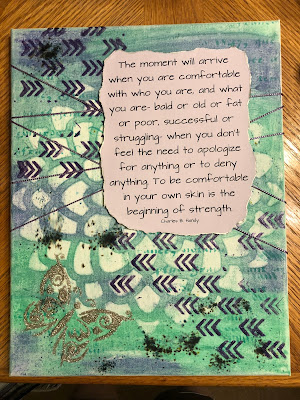 The moment will arrive
when you are comfortable
with who you are, and what
you are- bald or old or fat
or poor, successful or
struggling- when you don't
feel the need to apologize
for anything or to deny
anything. To be comfortable
in your own skin is the
beginning of strength.
Charles B. Handy